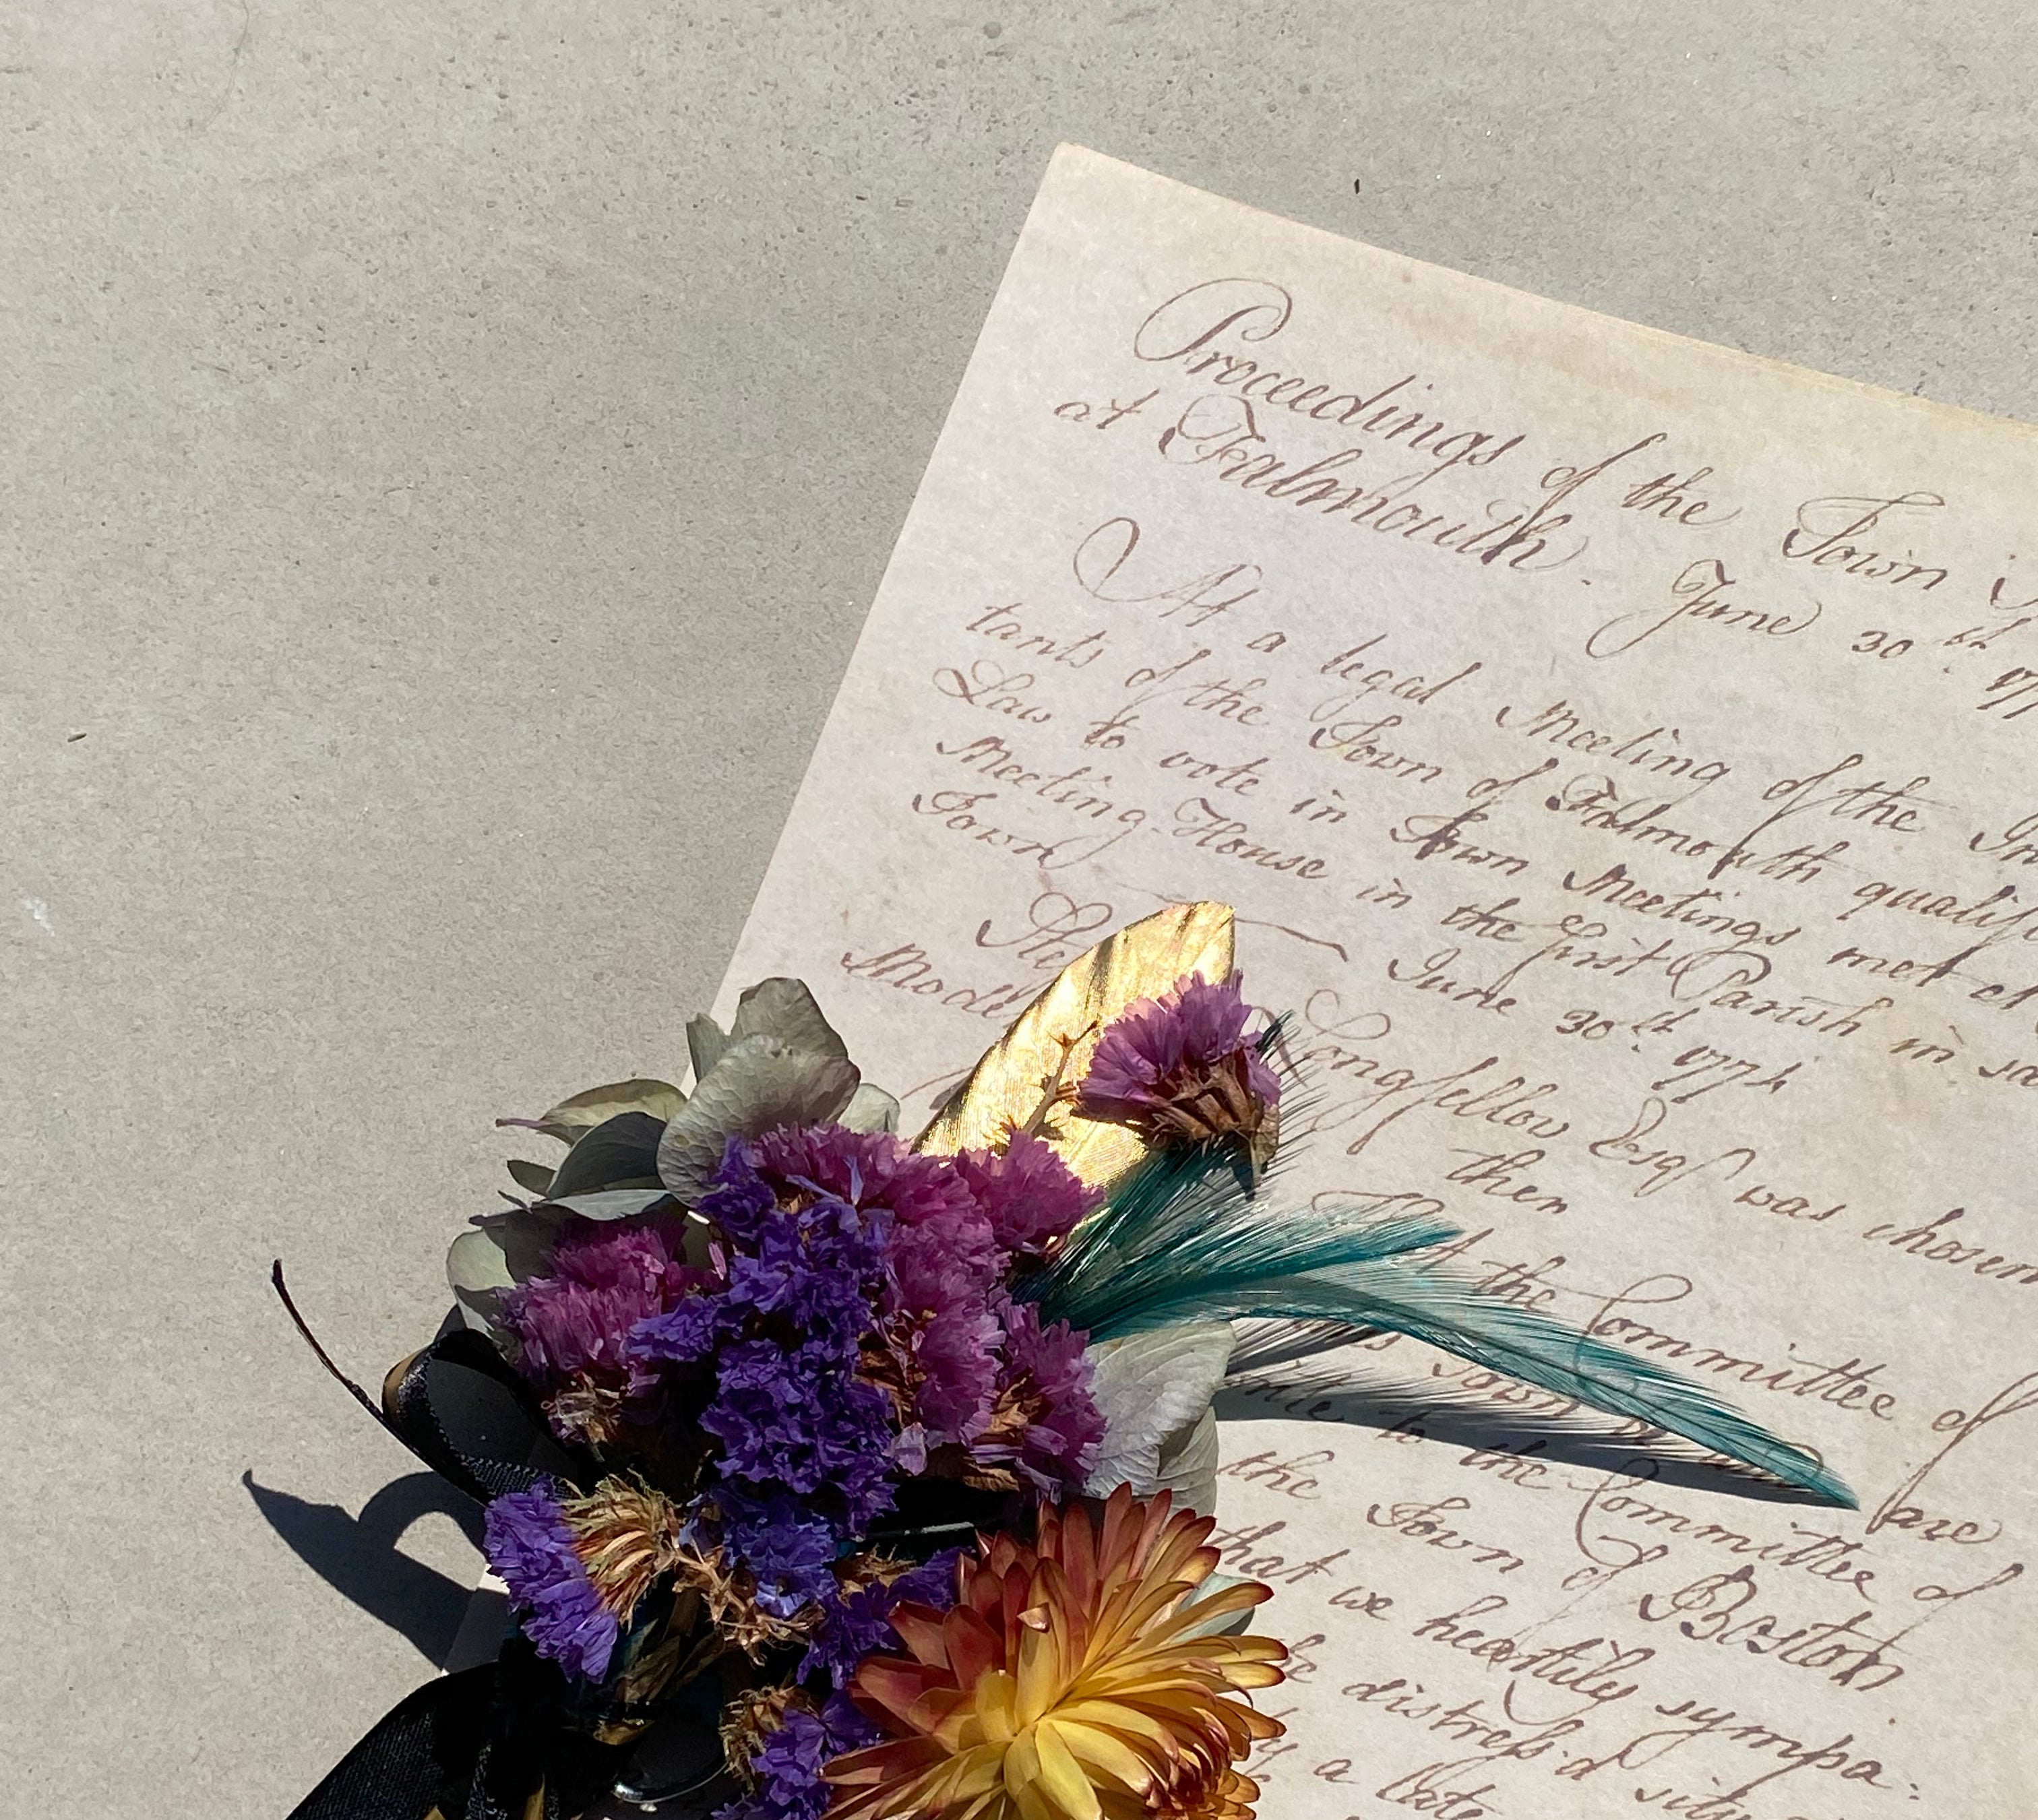 Proceedings of the Town
at Falmouth. June 30th. 177
At a legal Meeting of the In
tants of the Town of Falmouth qualif
Law to vote in Town Meetings met at
Meeting House in the first Parish in sa
Town June 30th. 1774
Ste Longfellow Esqr was chosen
Mode then
the Committee of
Town are
to the Committee of
the Town of Boston
that we heartily sympa-
distress'd situ
a late